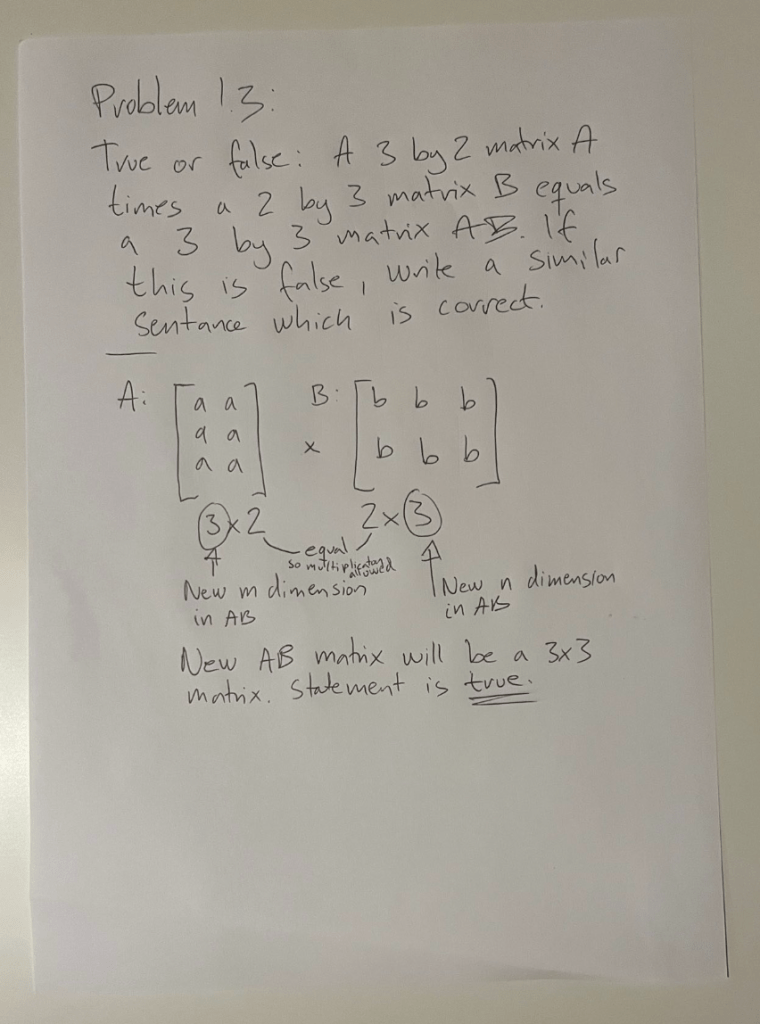 Problem 1.3:
True or false: A 3 by 2 matrix A
times a 2 by 3 matrix B equals
a 3 by 3 matrix AB. If
this is false, write a similar
sentance which is correct.
A: [ a a ] B: [ b b b ]
a a × b b b
a a
3×2 2×3
equal
so multiplication
allowed
New m dimension
in AB
New n dimension
in AB
New AB matrix will be a 3x3
matrix. Statement is true.